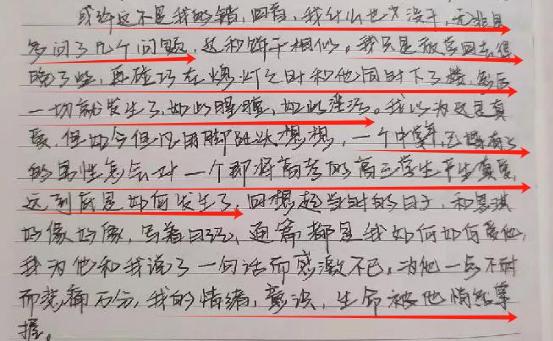 或许这不是我的错，回看，我什么也没干，无非且
多问了几个问题，这和饼干相似。我只是放学回去得
晚了些，再碰巧在熄灯之时和他同时下了楼，然后
一切就发生了，如此朦胧，如此混沌。我以为这是真
爱，但如今但凡用脚趾头想想，一个中年，已婚有子
的男性怎会对一个即将高考的高三学生产生真爱，
这到底是如何发生了，回想起当时的日子，和思琪
好像好像，写着日记，通篇都是我如何如何爱他，
我为他和我说了一句话而感激不已，为他一点不耐
而悲痛万分，我的情绪，意识，生命被他悄然掌
握。